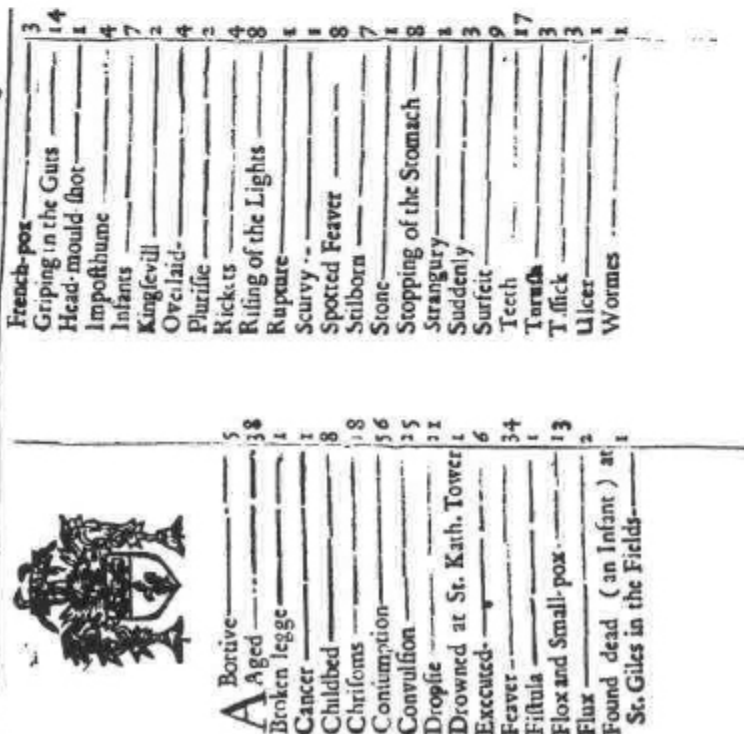 ABortive 5
Aged 38
Broken legge 1
Cancer 1
Childbed 8
Chriſoms 18
Conſumption 56
Convulſion
Dropſie
Drowned at St. Kath. Tower 1
Executed 6
Feaver 34
Fiſtula 1
Flox and Small-pox 13
Flux 2
Found dead (an Infant) at
St. Giles in the Fields 1
French-pox 3
Griping in the Guts 14
Head-mould-ſhot 1
Impoſthume 4
Infants 7
Kingſevill 2
Overlaid 4
Pluriſie 2
Rickets 4
Riſing of the Lights 8
Rupture 1
Scurvy 1
Spotted Feaver 8
Stilborn 7
Stone 1
Stopping of the Stomach 8
Strangury 1
Suddenly 3
Surfeit 9
Teeth 17
Thruſh 3
Tiſſick 3
Ulcer 1
Wormes 1